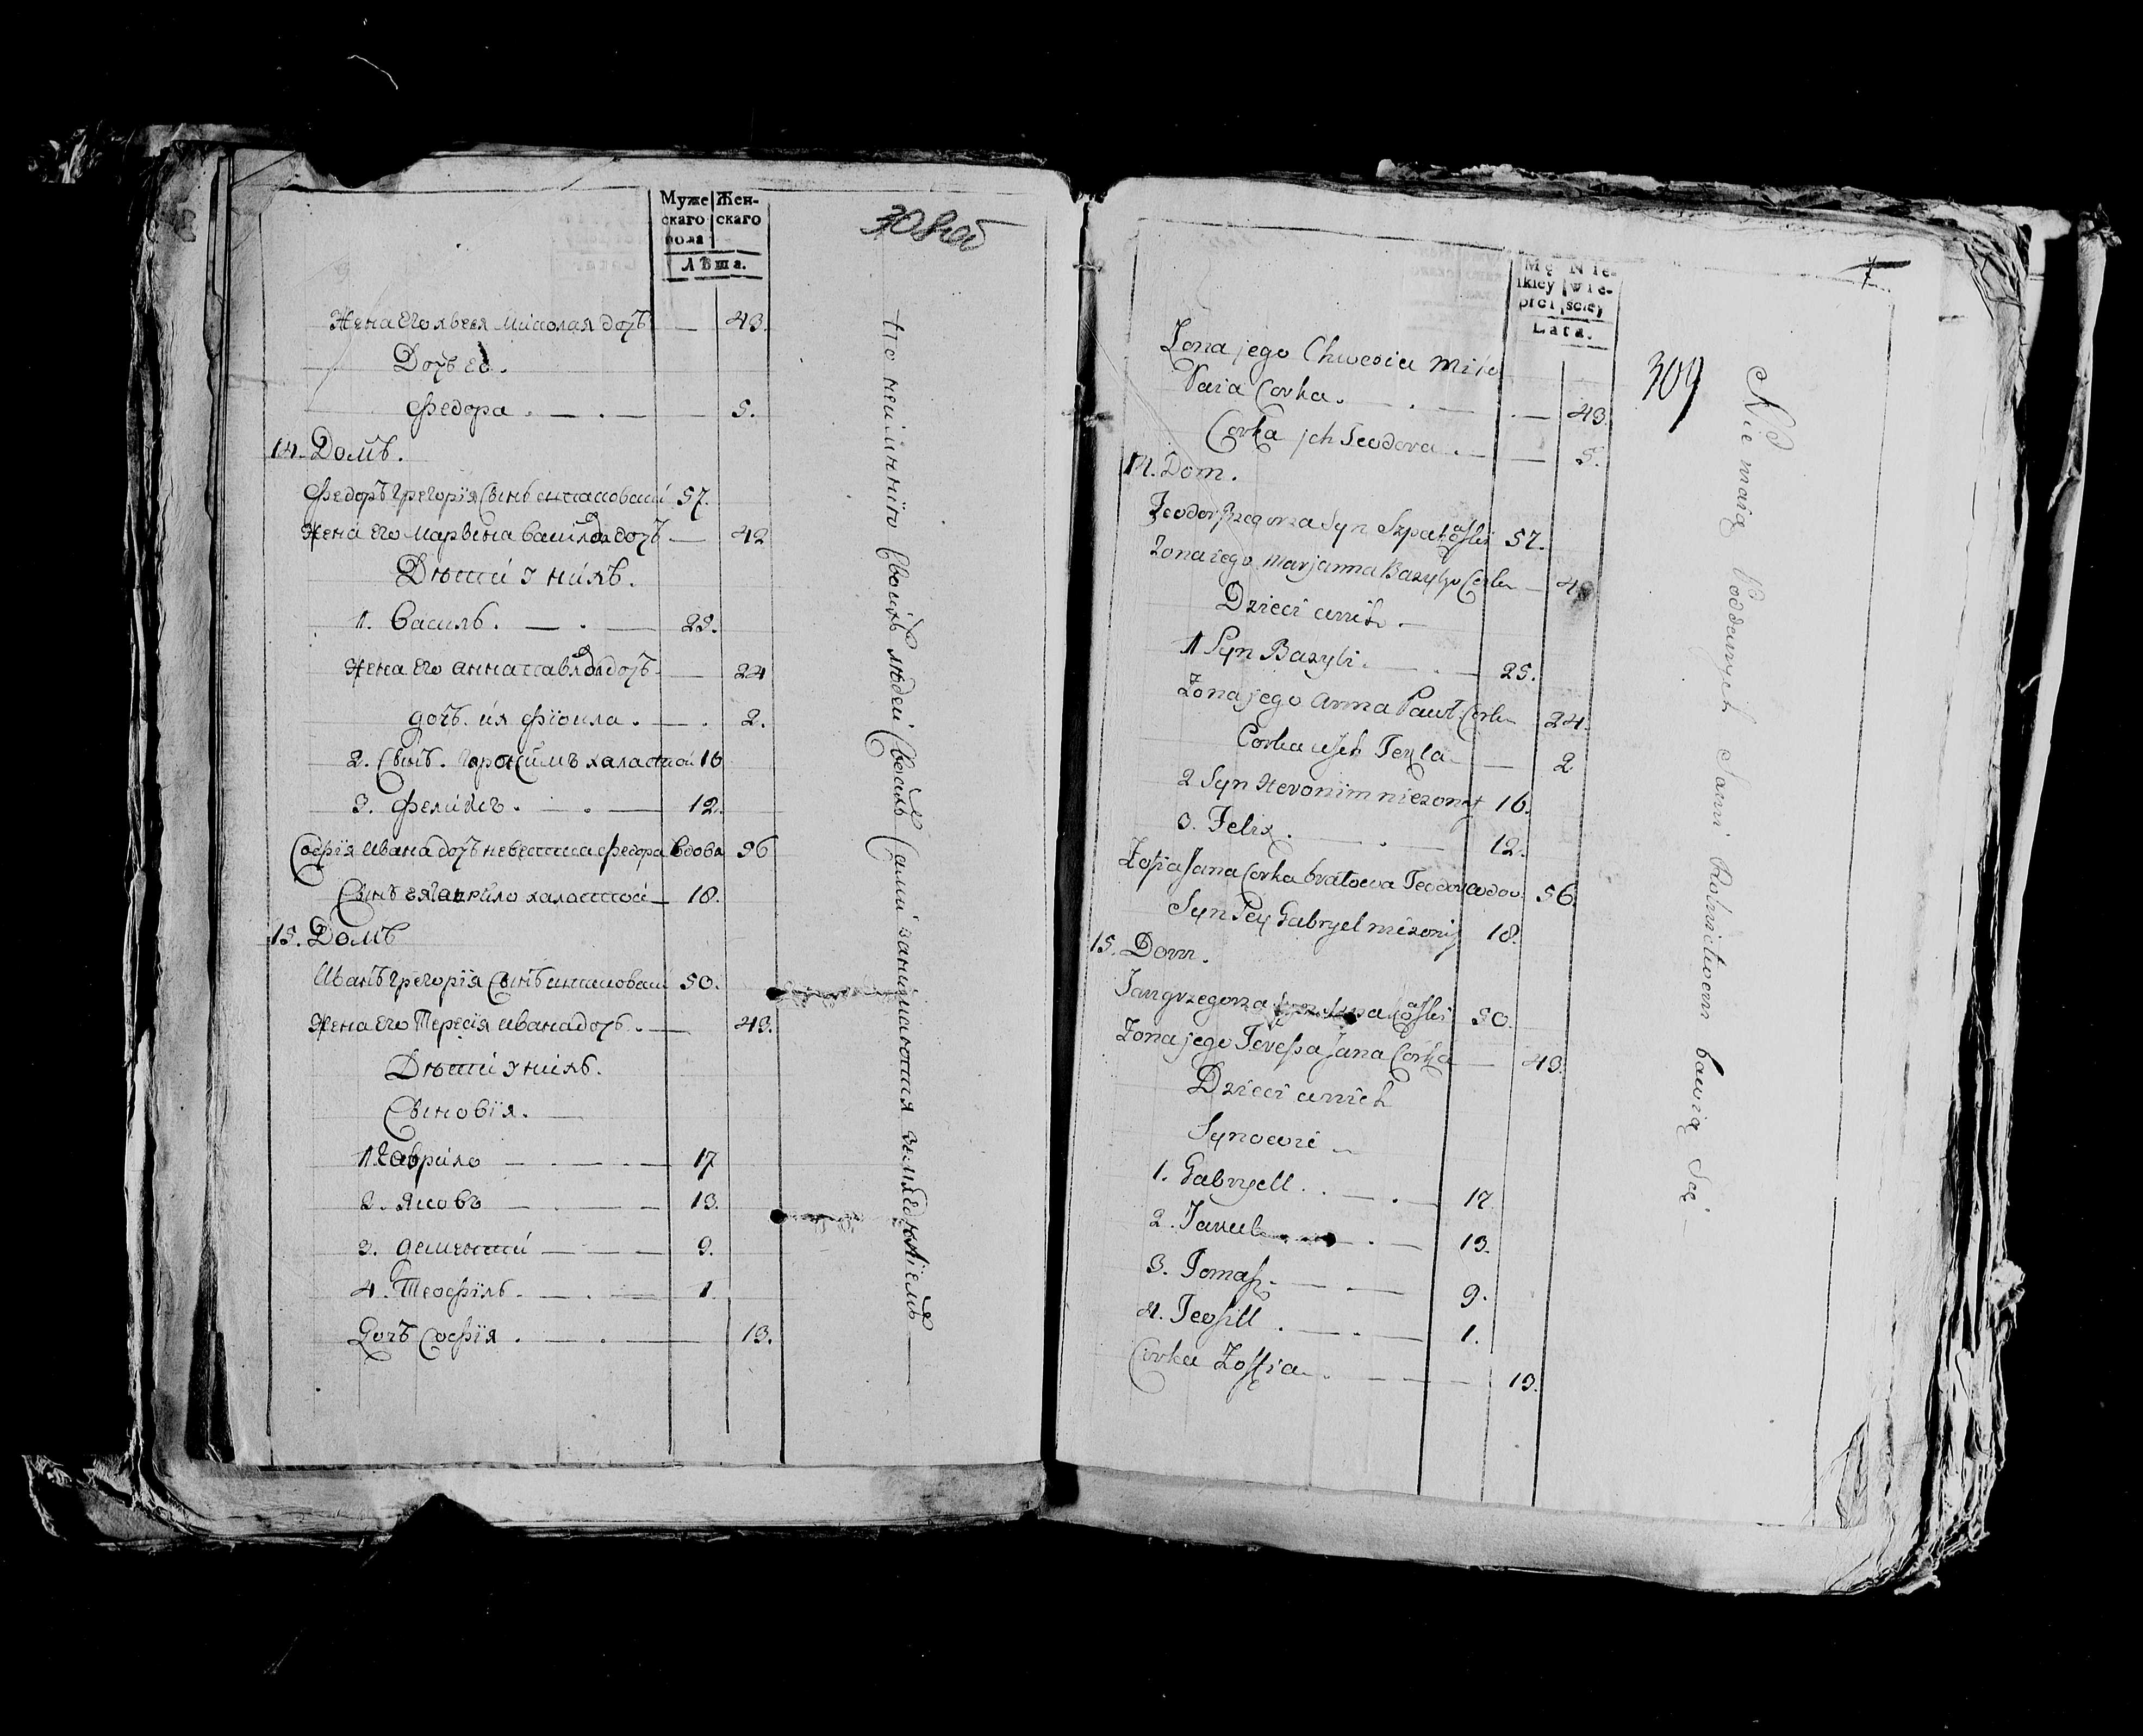 Муже Жен-
скаго скаго
пола
Лѣта.
308об
Жена его Миколая дочъ — 43.
Дочъ ед.
Федора . — . — 5.
14. Домъ.
Федоръ Грегорїя Сынъ 57.
Жена его Марьяна дочъ — 42
Дѣти У нихъ.
1. Василь. — . — 25.
Жена его Анна Павла дочъ — 24
дочъ их — . 2.
2. Сынъ. халастой 16
3. Феликсъ . — . — 12.
Софїя Ивана дочъ невестка Федора вдова 56
Сынъ ея Гаврило халастой — 18.
15. Домъ
Иванъ Грегорїя Сынъ 50.
Жена его Тересїя Ивана дочъ . — 43.
Дѣти У нихъ.
Сыновїя. —
1. Гаврило — . — . — 17
2. Яковъ — . — — 13.
3. — — — 9.
4. Теофїль . — . — 1.
Дочъ Софїя . — . — 13.
Не своихъ людей Сами занимаются —
Mę Nie-
skiey wie-
płci sciey
Lata.
309
Zona jego Chwesia Miko
łaia Corka . — . — 43.
Corka jch Teodora . — — 5.
14. Dom.
Teodor Grzegorza Syn 57.
Zona iego Marjanna Bazylego Corka —
Dzieci unich —
1 Syn Bazyli . — . — 25.
Zona jego Anna Pawł. Corka 24.
Corka uSich Tekla — — 2
2 Syn Heronim niezonat 16.
3. Felix . — . — 12.
Zofia Jana Corka bratowa Teodora wdow. 56.
Syn Jey Gabryel niezonaty 18.
15. Dom.
Jan Grzegorza 50.
Zona jego Teressa Jana Corka — 43.
Dzieci unich
Synowie —
1. Gabryell . . — . 17
2. Jakub — . — 13.
3. Tomasz . — — 9.
4. Teofill . — . — 1.
Corka Zoffia . — — 13.
Nie maią Poddanych Sami Rolnictwem bawią Się —